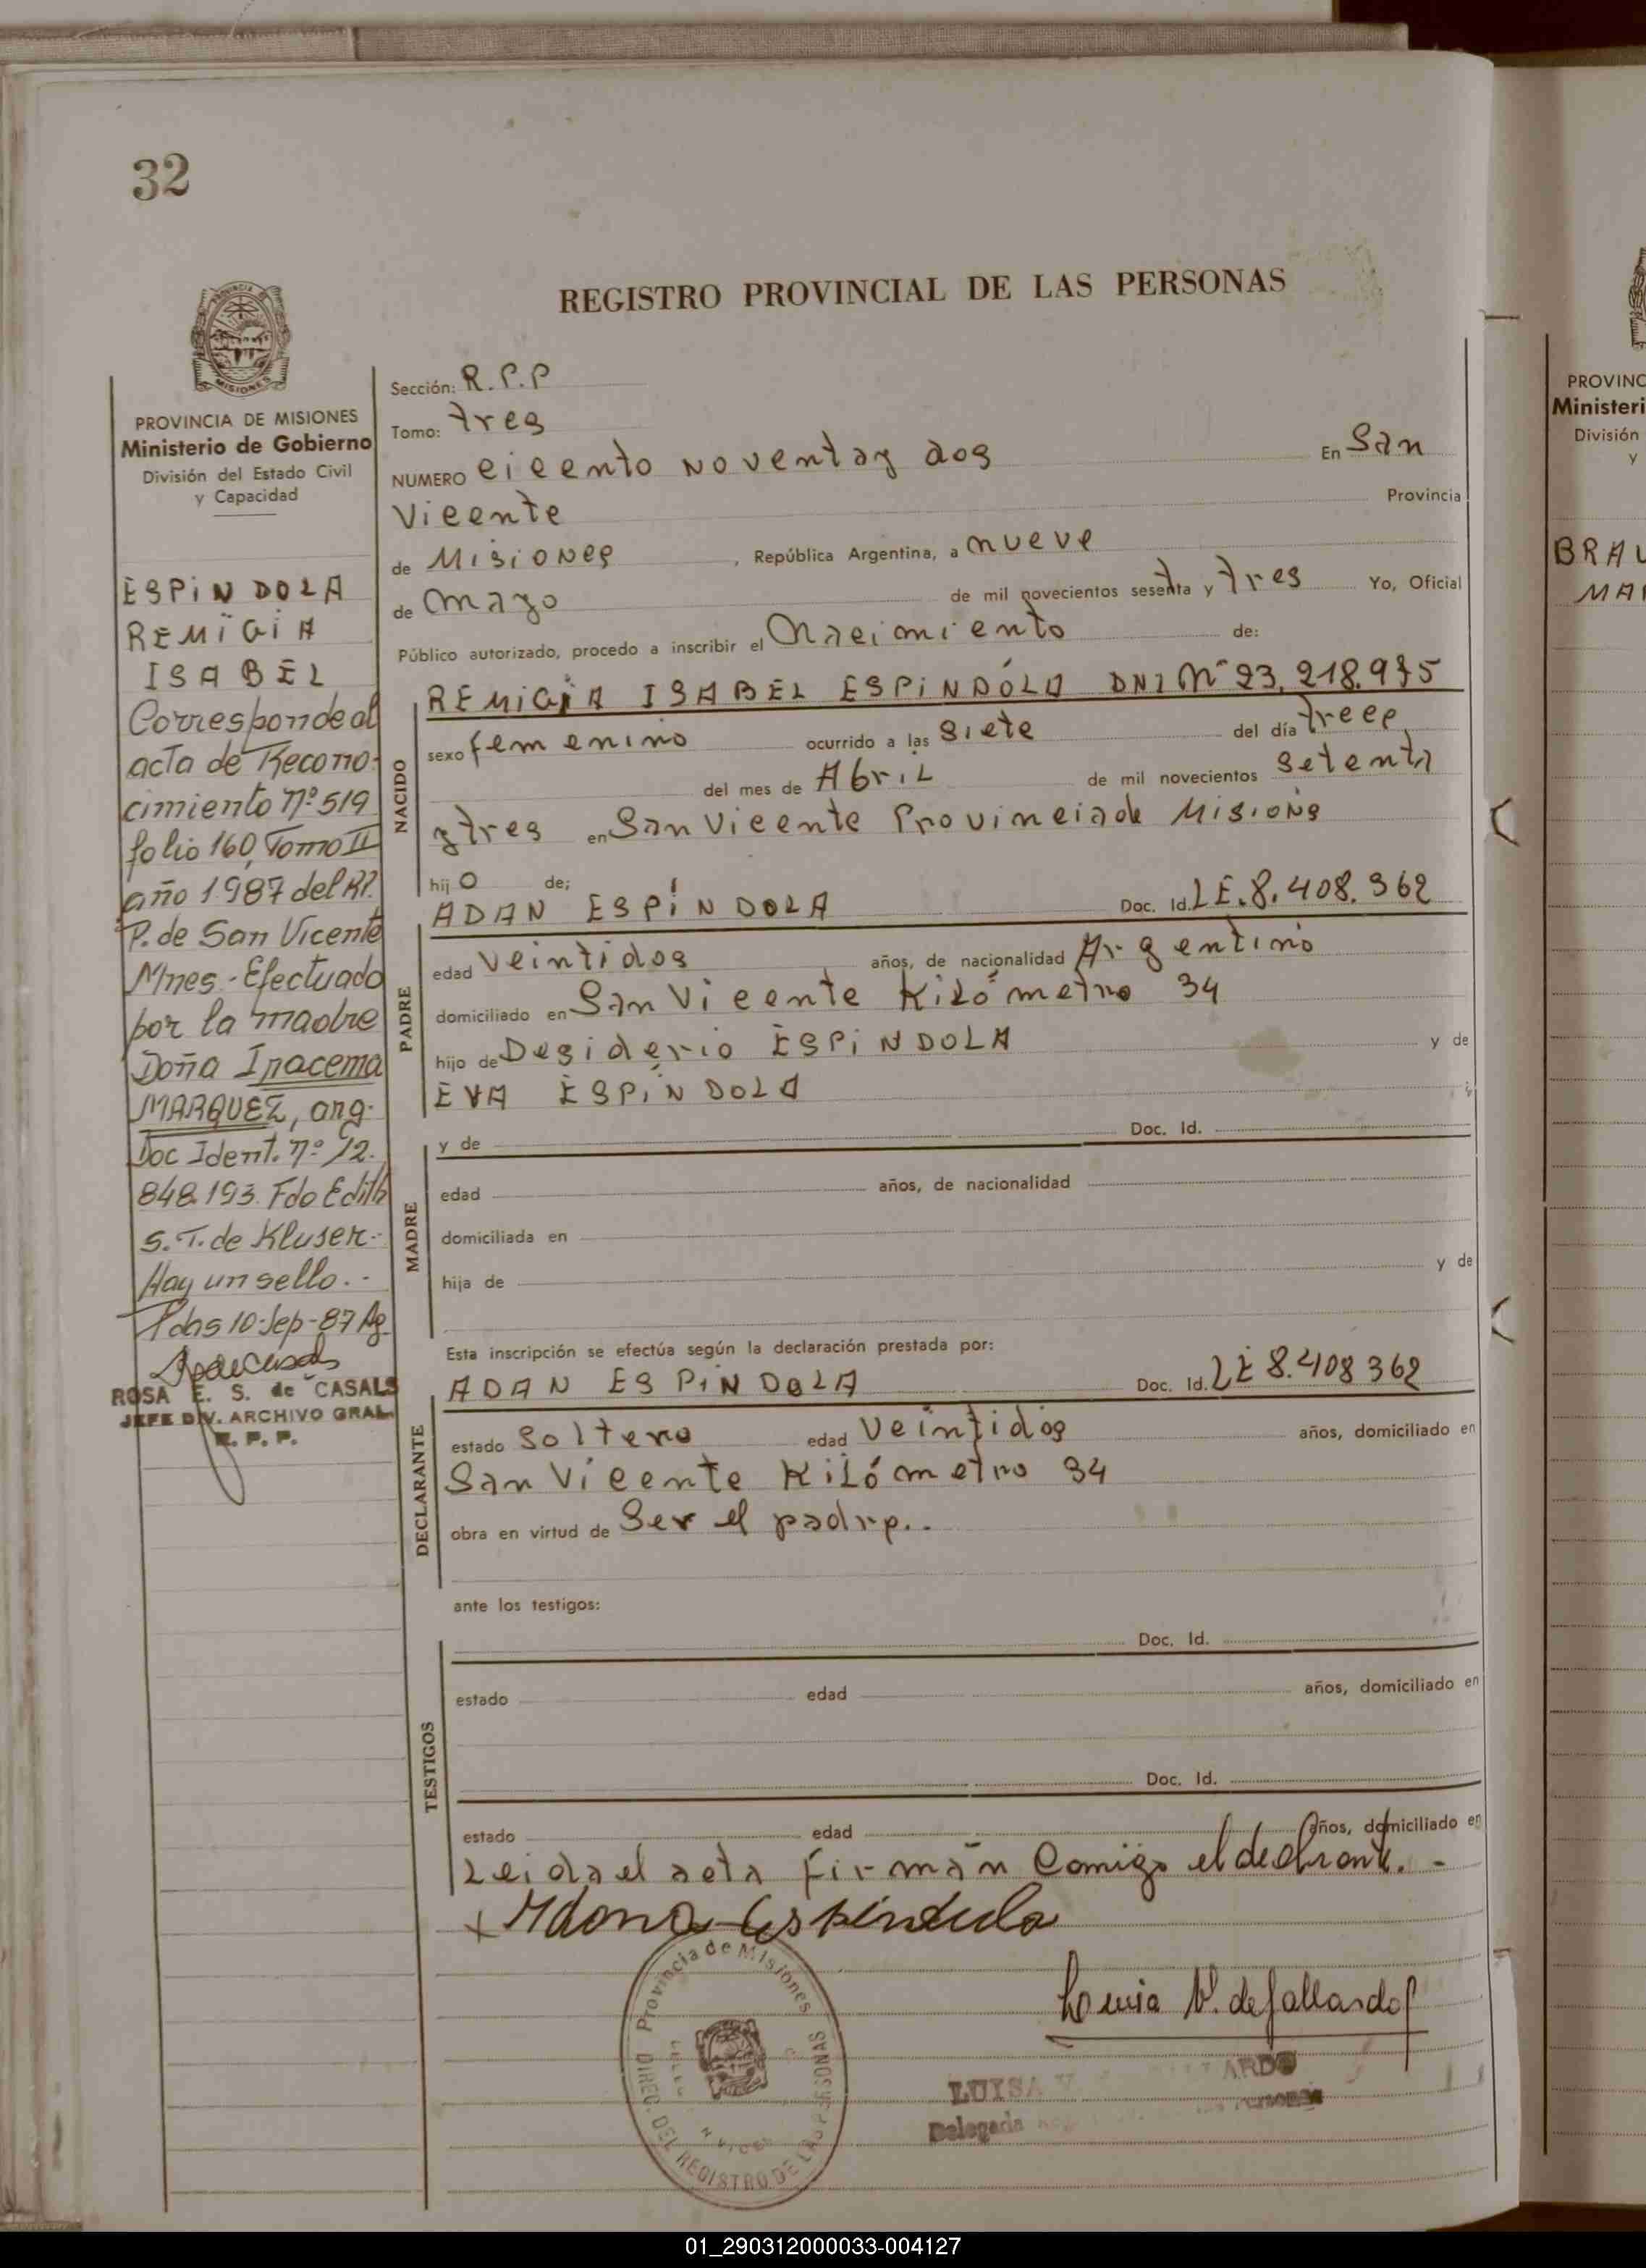 32
REGISTRO PROVINCIAL DE LAS PERSONAS
PROVINCIA DE MISIONES
Ministerio de Gobierno
División del Estado Civil
y Capacidad
ESPINDOLA
REMIGIA
ISABEL
Corresponde al
acta de Recono-
cimiento nº 519
folio 160, Tomo II
año 1987 del R.P.
P. de San Vicente
Mnes.- Efectuado
por la madre
Doña Iracema
MARQUEZ, arg.
Doc Ident. nº 12.
848.193. Fdo Edith
S. T. de Kluser.-
Hay un sello.-
Pdas 10-Sep-87 Ag.
ROSA E. S. de CASALS
JEFE DIV. ARCHIVO GRAL.
R. P. P.
Sección: R.P.P
Tomo: tres
NUMERO ciento noventa y dos En San
Vicente Provincia
de Misiones , República Argentina, a nueve
de mayo de mil novecientos sesenta y tres Yo, Oficial
Público autorizado, procedo a inscribir el Nacimiento de:
NACIDO
REMIGIA ISABEL ESPINDOLA DNI Nº 23.218.975
sexo femenino ocurrido a las siete del día trece
del mes de Abril de mil novecientos setenta
y tres en San Vicente Provincia de Misions
hijo de;
PADRE
ADAN ESPINDOLA Doc. Id. LE.8.408.362
edad veintidos años, de nacionalidad Argentino
domiciliado en San Vicente Kilómetro 34
hijo de Desiderio ESPINDOLA y de
EVA ESPINDOLA
MADRE
y de Doc. Id.
edad años, de nacionalidad
domiciliada en
hija de y de
Esta inscripción se efectúa según la declaración prestada por:
DECLARANTE
ADAN ESPINDOLA Doc. Id. LE 8.408 362
estado Soltero edad Veintidos años, domiciliado en
San Vicente Kilómetro 34
obra en virtud de Ser el padre..
ante los testigos:
TESTIGOS
Doc. Id.
estado edad años, domiciliado en
Doc. Id.
estado edad años, domiciliado en
Leida el acta firmán Comigo el declrante.-
Luisa V. de Gallardo
Provincia de Misiones
DIREC. DEL REGISTRO DE LAS PERSONAS
LUISA V. ARDO
Delegada
PROVINC
Ministeri
División
y
BRAU
MAR
01_290312000033-004127